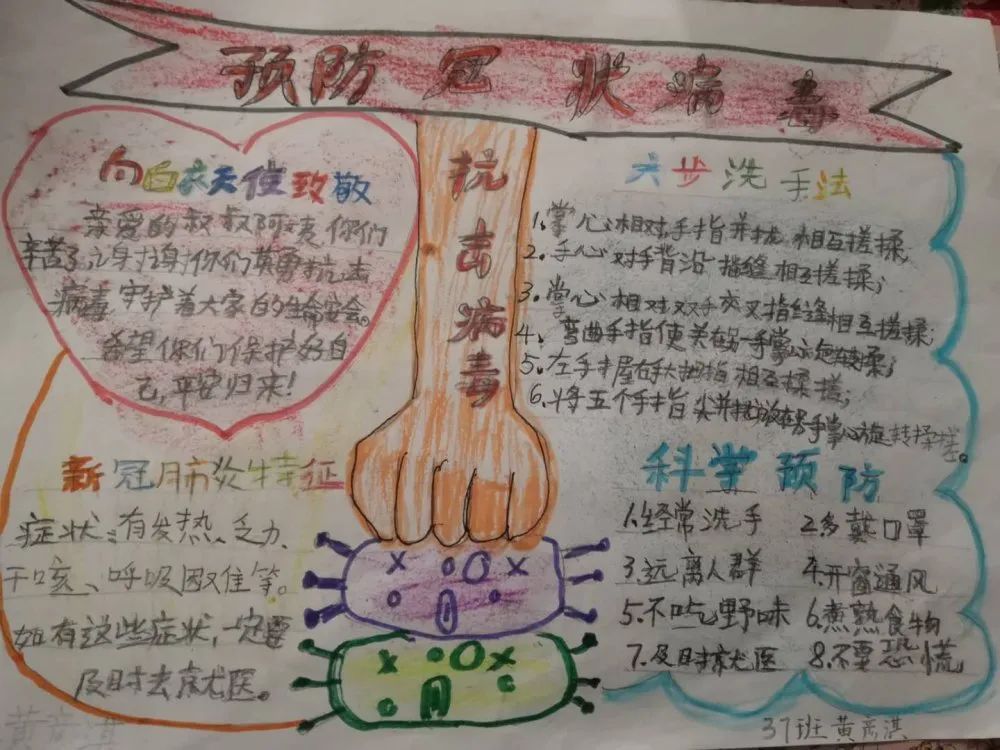 预防冠状病毒
向白衣天使致敬
亲爱的叔叔阿姨你们
辛苦了,感谢你们英勇抗击
病毒,守护着大家的生命安全。
希望你们保护好自
己,平安归来!
抗击病毒
六步洗手法
1.掌心相对,手指并拢相互搓揉,
2.手心对手背沿指缝相互搓揉;
3.掌心相对双手交叉指缝相互搓揉;
4.弯曲手指使关在另一手掌心旋转揉;
5.左手握右手大拇指相互揉搓;
6.将五个手指尖并拢放在另手掌心旋转揉搓。
新冠肺炎特征
症状:有发热、乏力、
干咳、呼吸困难等。
如有这些症状,一定要
及时去就医。
科学预防
1.经常洗手 2.多戴口罩
3.远离人群 4.开窗通风
5.不吃野味 6.煮熟食物
7.及时就医 8.不要恐慌
37班黄彦淇